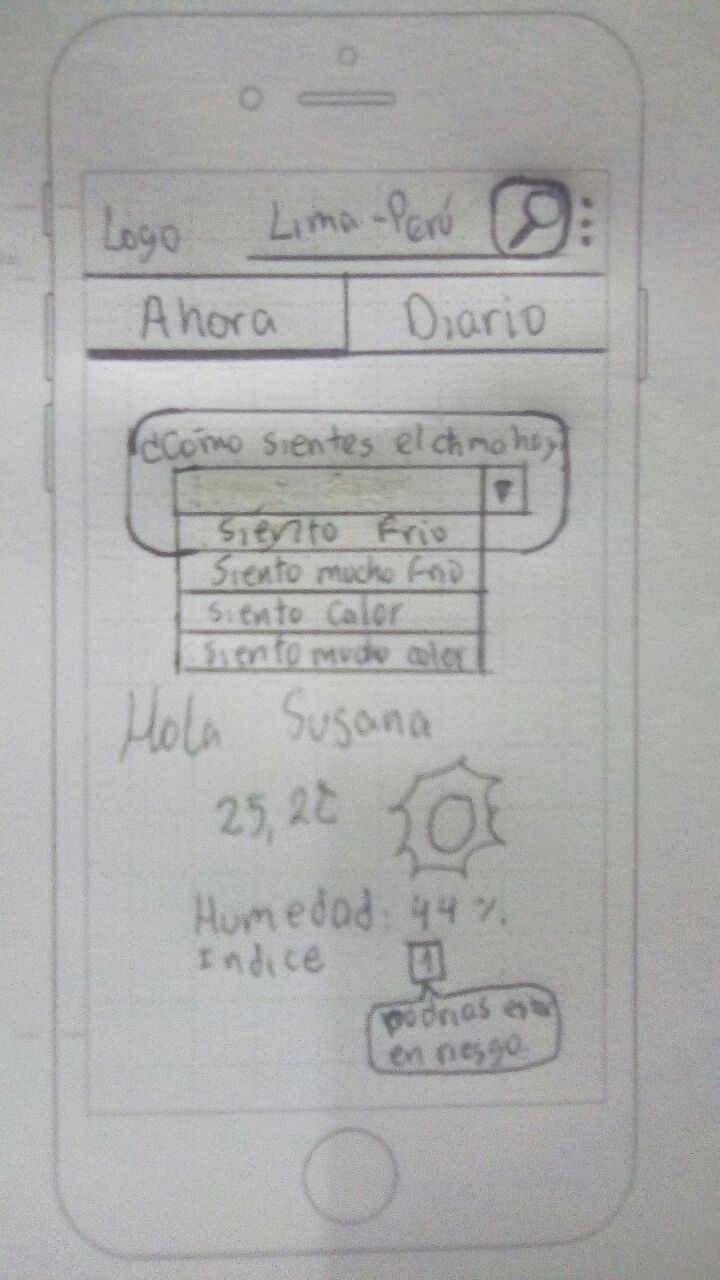 Logo Lima - Perú
Ahora Diario
¿Cómo sientes el clima hoy
Siento Frio
Siento mucho frio
siento calor
siento mucho calor
Hola Susana
25,2°C
Humedad: 44 %.
Indice 1
podrias estar
en riesgo.